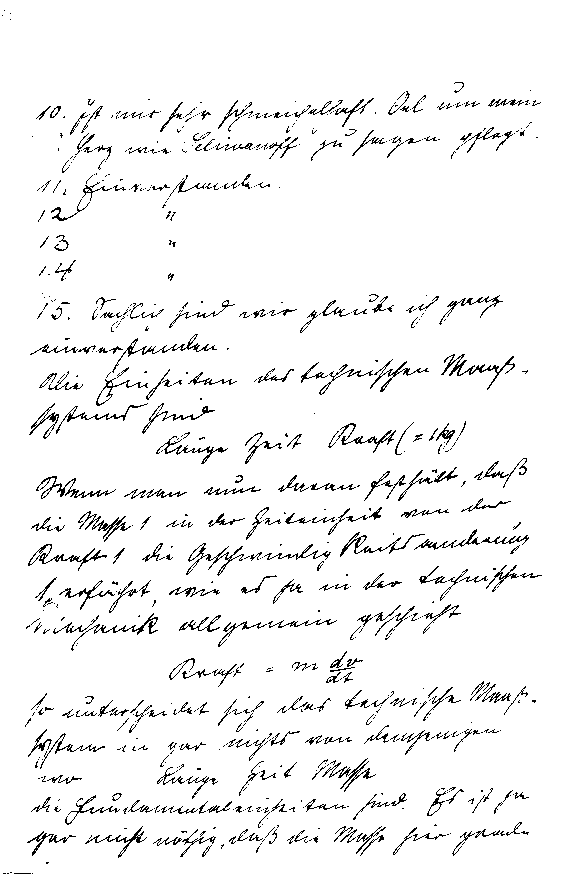 10. Ist mir sehr schmeichelhaft. Sal um mein
Herz wie Selivanoff zu sagen pflegt.
11. Einverstanden.
12 "
13 "
14 "
15. Sachlich sind wir glaube ich ganz
einverstanden.
Die Einheiten des technischen Maaß-
systems sind
Länge Zeit Kraft (= 1kg)
Wenn man nun daran festhält, daß
die Masse 1 in der Zeiteinheit von der
Kraft 1 die Geschwindigkeitsänderung
1 erfährt, wie es ja in der technischen
Mechanik allgemein geschieht
Kraft = m dv/dt
so unterscheidet sich das technische Maaß-
system in gar nichts von demjenigen
wo Länge Zeit Masse
die Fundamentaleinheiten sind. Es ist ja
gar nicht nöthig, daß die Masse hier gerade